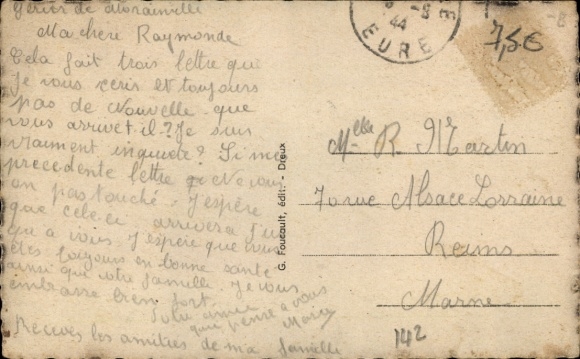 Ma chère Raymonde
Cela fait trois lettre que
Je vous ecris et toujours
pas de Nouvelle que
vous arrivet il? Je suis
vraiment inquiete? Si me
precedente lettre Ne vous
on pas touché. J'espère
que celle ci arrivera
a vous J'espère que vous
êtes toujours en bonne santé
ainsi que votre famille. Je vous
embrasse bien fort
Votre amie
qui pense a vous
Recevez les amities de ma famille
G. Foucault, édit. - Dreux
-8
44
EURE
7,5€
Melle R. Martin
70 rue Alsace Lorraine
Reims
Marne
142